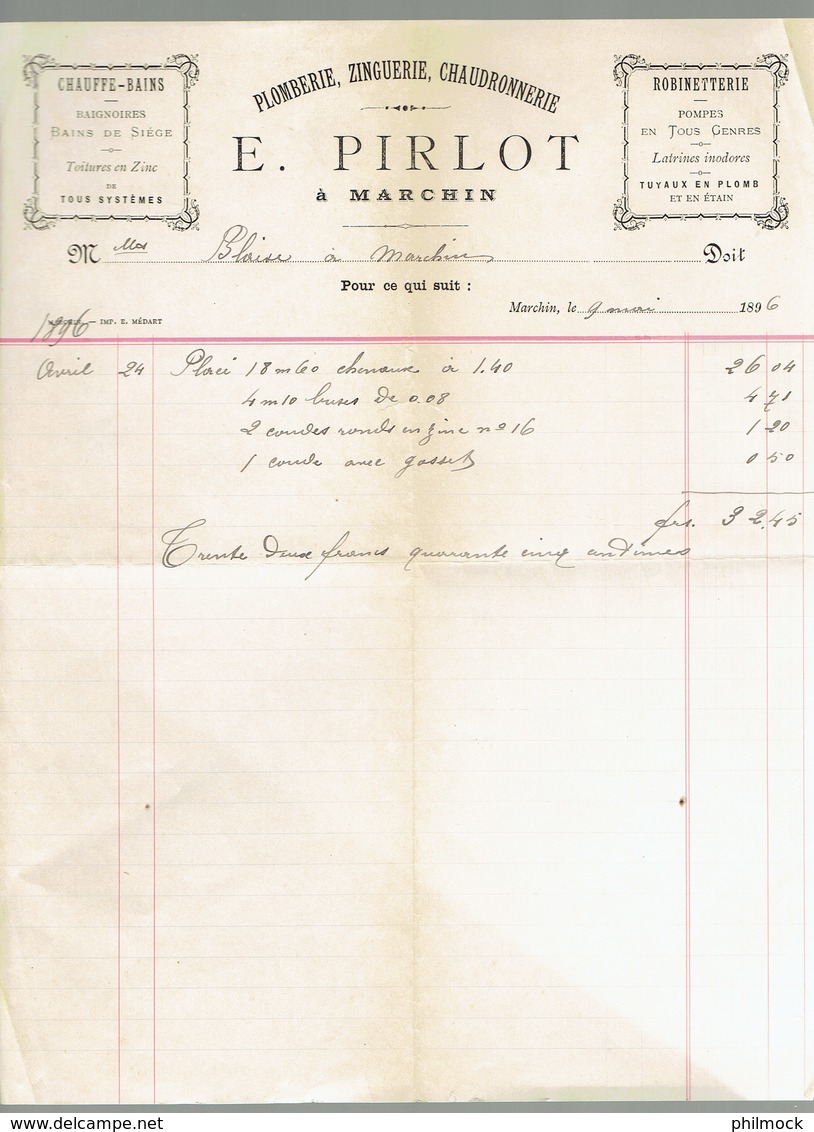 CHAUFFE-BAINS
BAIGNOIRES
BAINS DE SIÉGE
Toitures en Zinc
DE
TOUS SYSTÈMES
PLOMBERIE, ZINGUERIE, CHAUDRONNERIE
E. PIRLOT
à MARCHIN
ROBINETTERIE
POMPES
EN TOUS GENRES
Latrines inodores
TUYAUX EN PLOMB
ET EN ÉTAIN
M Blaise à Marchin Doit
Pour ce qui suit :
Marchin, le 9 mai 1896
MARCHIN. — IMP. E. MÉDART
1896
Avril 24 Placé 18m60 chenaux à 1.40 26 04
4m10 buses de 0.08 4 71
2 coudes ronds en zinc nº 16 1 20
1 coude avec gosset 0 50
frs. 32.45
Trente deux francs quarante cinq centimes
philmock